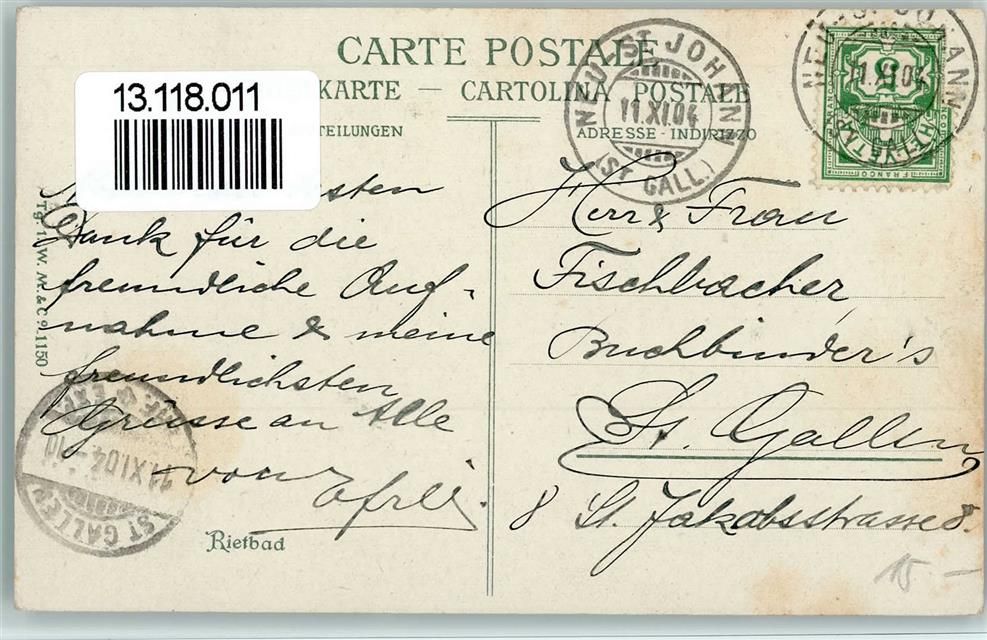 CARTE POSTALE
13.118.011
KARTE — CARTOLINA POSTALE
TEILUNGEN
ADRESSE - INDIRIZZO
NEU ST JOHANN
11.XI.04
(ST GALL.)
NEU ST JOHANN
11.XI.04
5
FRANCO
sten
Dank für die
freundliche Auf-
nahme & meine
freundlichsten
Grüsse an Alle
von
Herr & Frau
Fischbacher
Buchbinder's
St. Gallen
8 St. Jakobsstrasse 8.
W. M. & C° 11150
11.XI.04-10
ST GALLEN
Rietbad
15 —